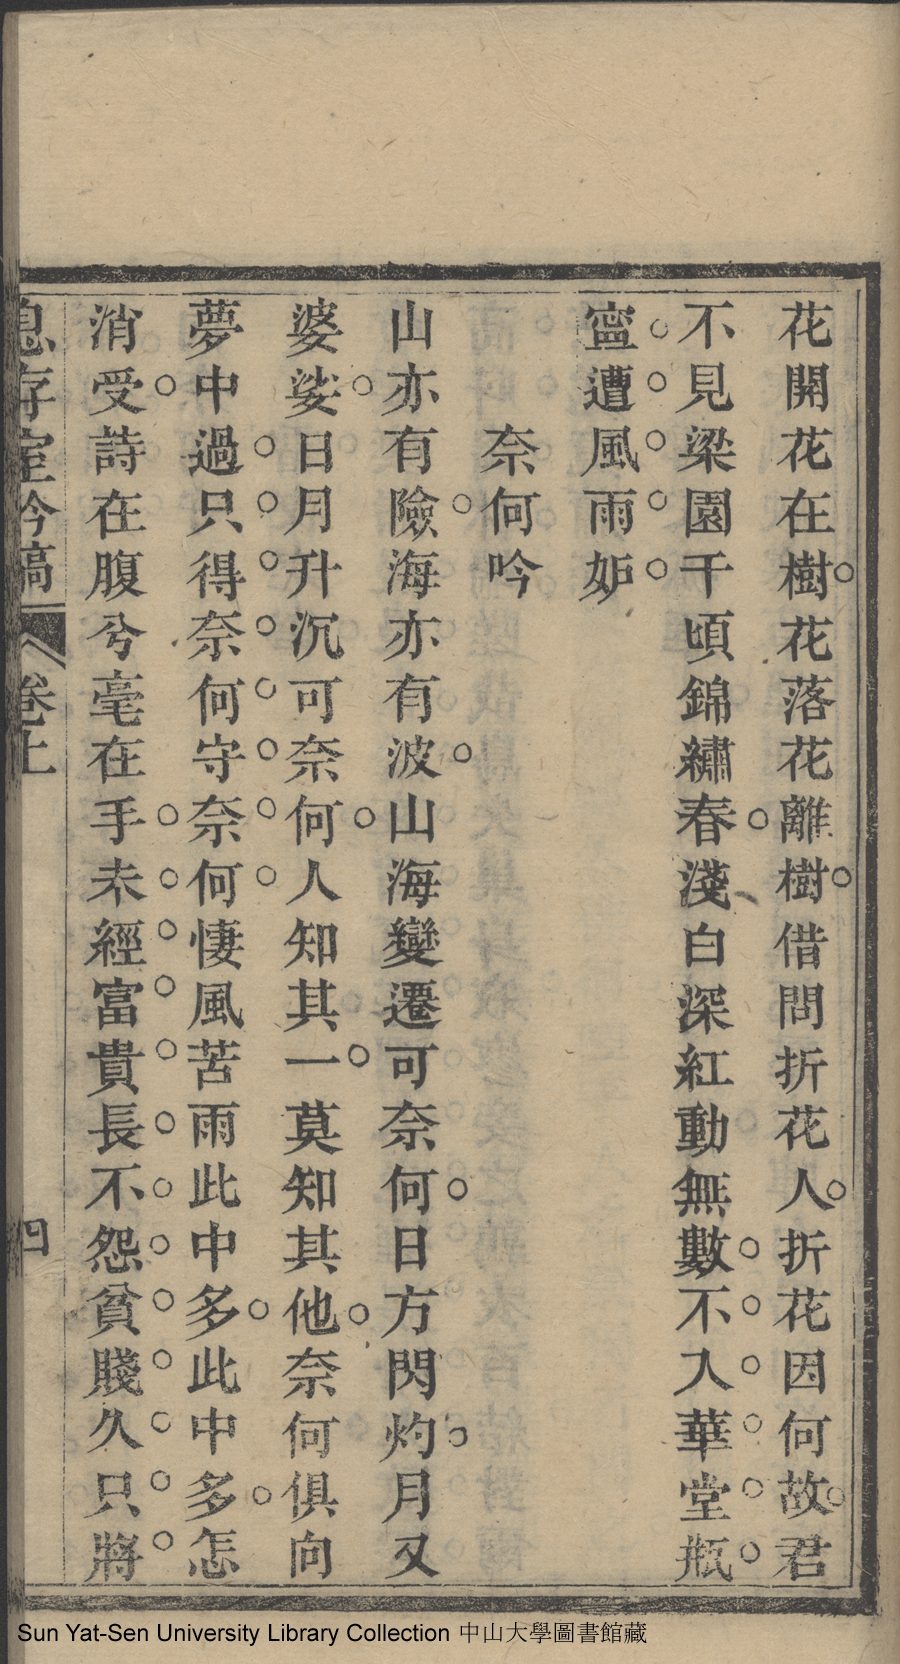 花開花在樹花落花離樹借問折花人折花因何故君
不見梁園千頃錦繡春淺白深紅動無數不入華堂瓶
寍遭風雨妒
奈何吟
山亦有險海亦有波山海變遷可奈何日方閃灼月又
婆娑日月升沉可奈何人知其一莫知其他奈何俱向
夢中過只得奈何守奈何悽風苦雨此中多此中多怎
消受詩在腹兮毫在手未經富貴長不怨貧賤久只將
息存室吟稿 卷上 四
Sun Yat-Sen University Library Collection 中山大學圖書館藏